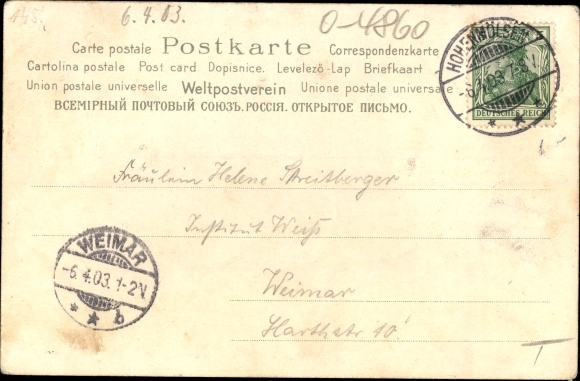 145.
6.4.03.
0-4860
Carte postale Postkarte Correspondenzkarte
Cartolina postale Post card Dopisnice. Levelező-Lap Briefkaart
Union postale universelle Weltpostverein Unione postale universa
ВСЕМІРНЫЙ ПОЧТОВЫЙ СОЮЗЪ. РОССІЯ. ОТКРЫТОЕ ПИСЬМО.
HOHENMÖLSEN
-6.4.03. 7-8V
* * b
DEUTSCHES REICH
Fräulein Helene Streitberger
Institut Weiß
Weimar
Harthstr 10.
WEIMAR
-6.4.03. 1-2N
* * b